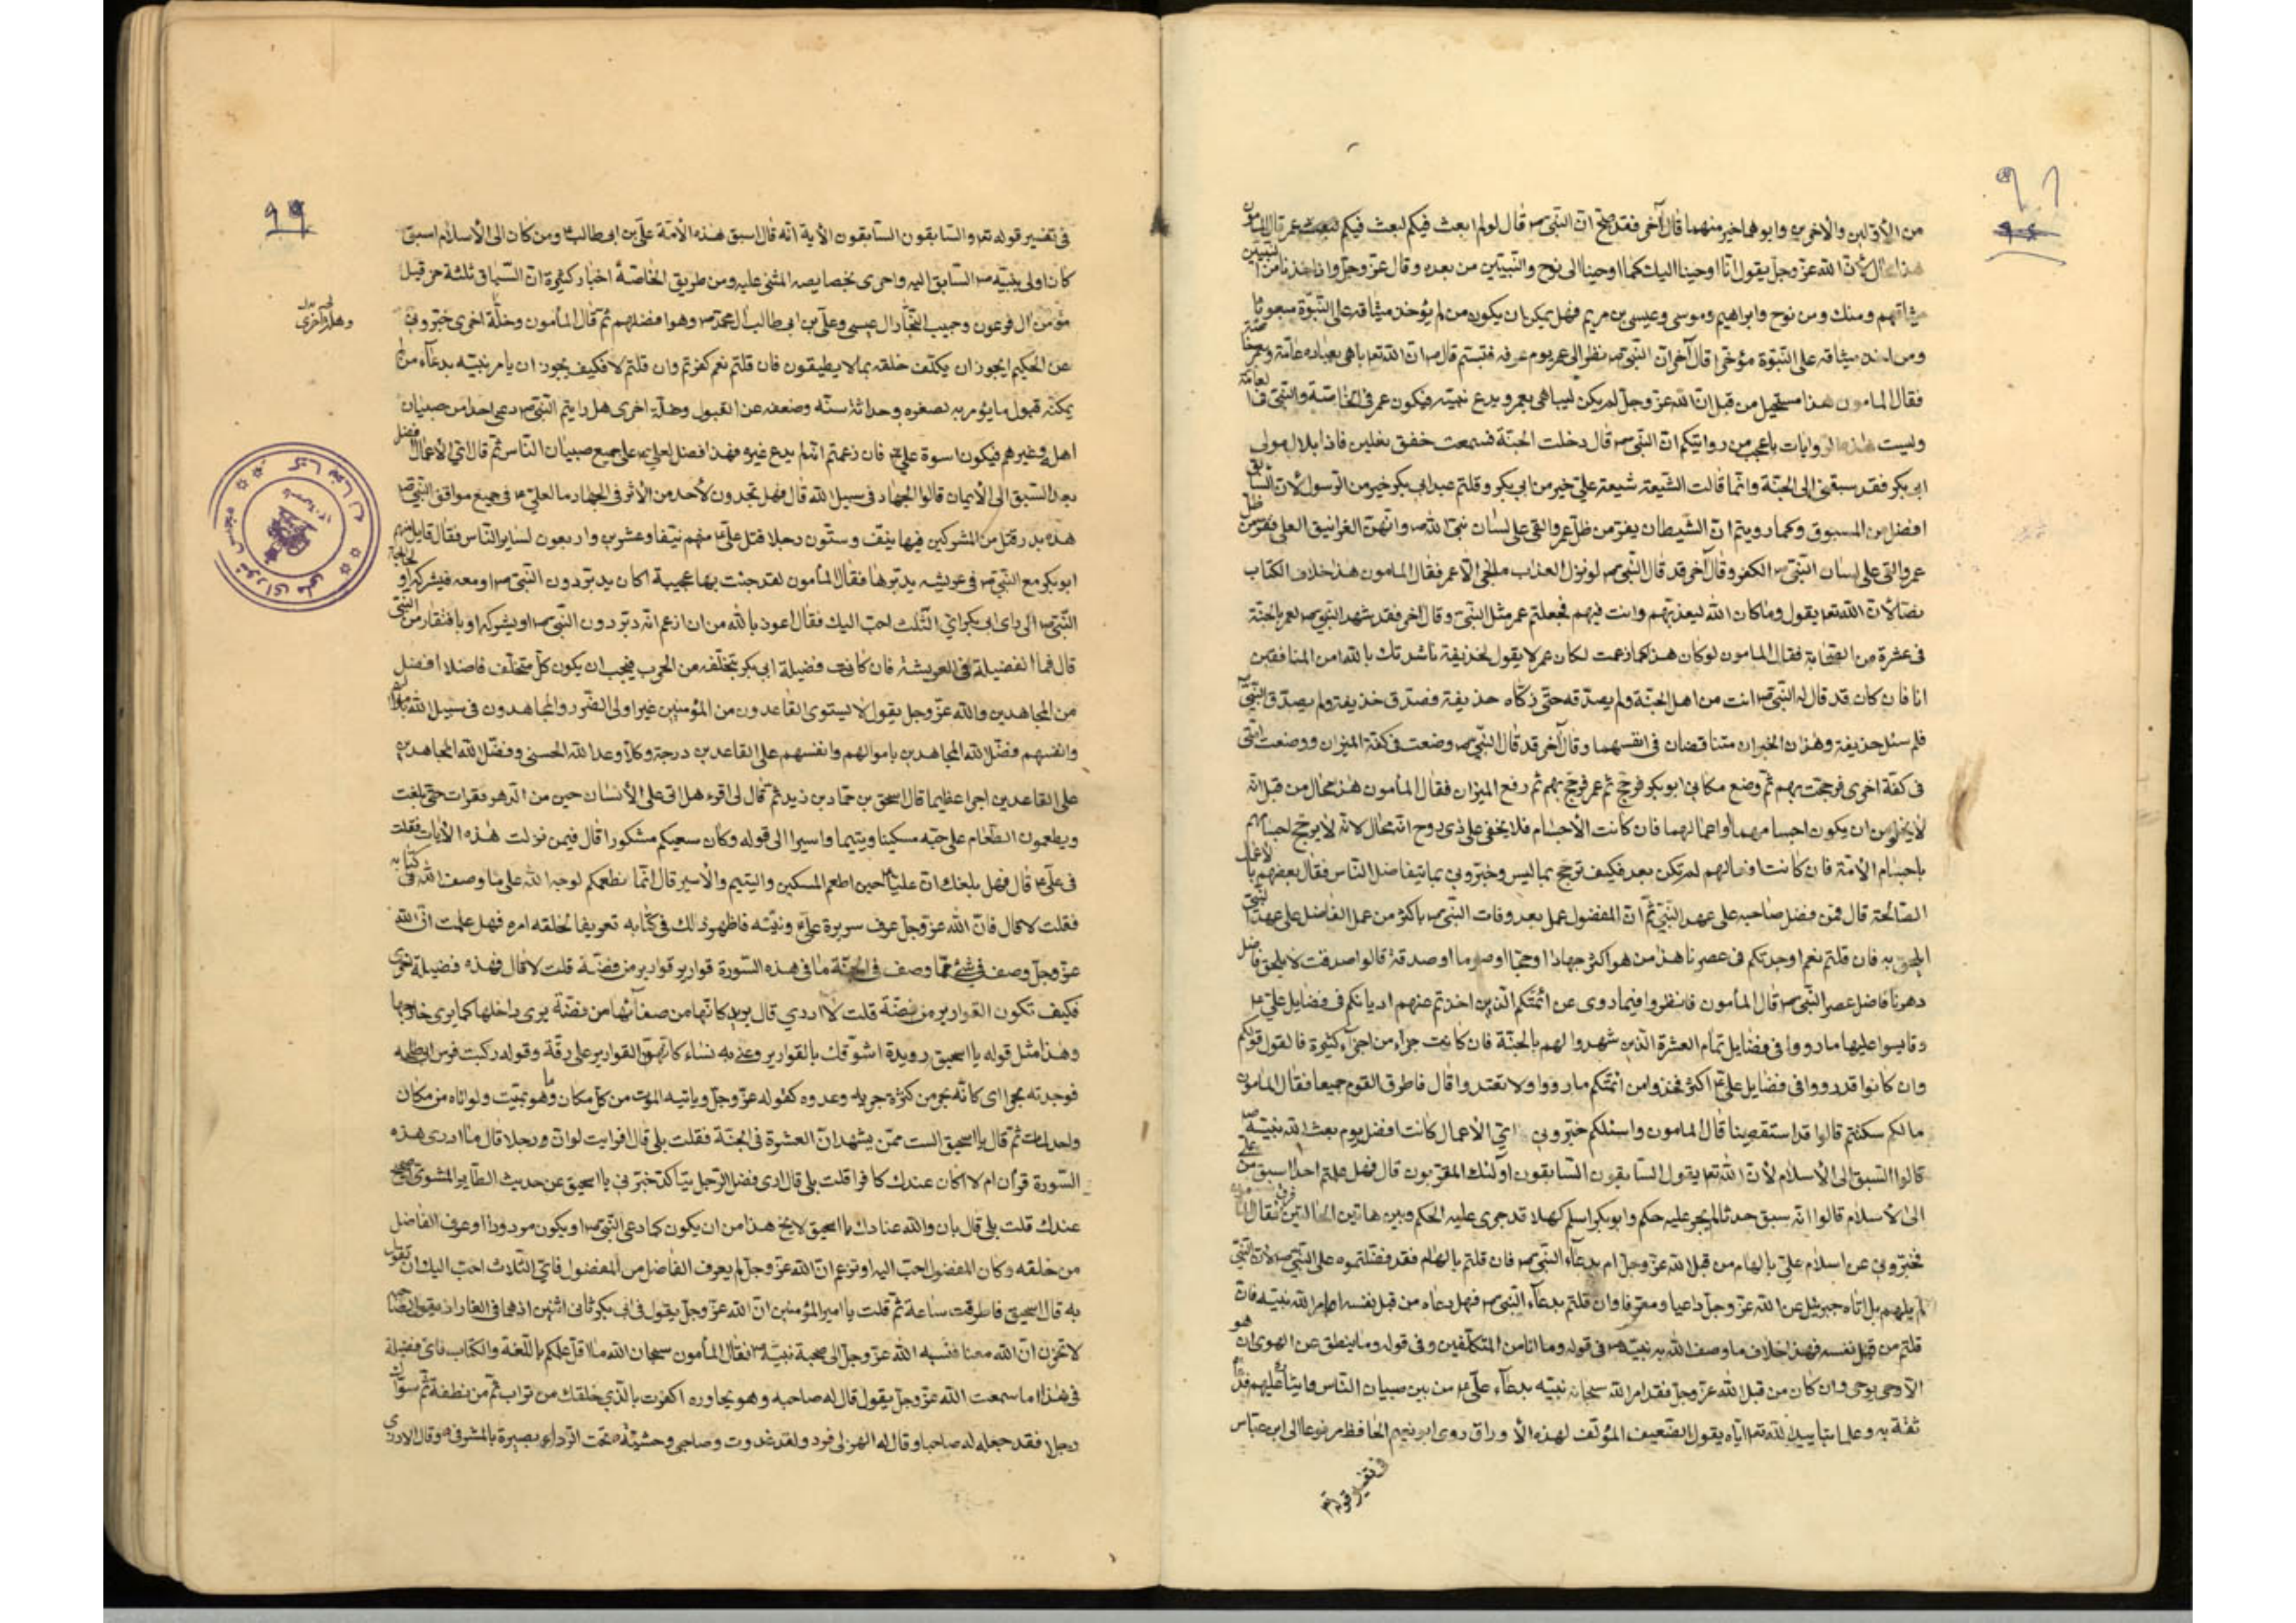 من الأولين والآخرين وابوهما خير منهما قال آخر فقد صح ان النبي ص قال لو لم ابعث فيكم لبعث فيكم عمر قال المأمون
هذا محال لأن الله عز وجل يقول انا اوحينا اليك كما اوحينا الى نوح والنبيين من بعده وقال عز وجل واذ اخذنا من النبيين
ميثاقهم ومنك ومن نوح وابراهيم وموسى وعيسى بن مريم فهل يمكن ان يكون من لم يؤخذ ميثاقه على النبوة مبعوثا
ومن اخذ ميثاقه على النبوة مؤخرا قال آخر ان النبي ص نظر الى عمر يوم عرفه فتبسم قال ص ان الله تعا باهى بعباده عامة وبعمر خاصة
فقال المامون هذا مستحيل من قبل ان الله عز وجل لم يكن ليباهى بعمر ويدع نبيه فيكون عمر في الخاصة والنبي في العامة
وليست هذه الروايات باعجب من روايتكم ان النبي ص قال دخلت الجنة فسمعت خفق نعلين فاذا بلال مولى
ابى بكر فقد سبقني الى الجنة وانما قالت الشيعة شيعة علي خير من ابى بكر وقلتم عبد ابى بكر خير من الرسول لأن السابق
افضل من المسبوق وكما رويتم ان الشيطان يفر من ظل عمر والقى على لسان نبي الله ص وانهن الغرانيق العلى ففر من ظل
عمر والقى على لسان النبي ص الكفر وقال آخر قد قال النبي ص لو نزل العذاب ما نجى الا عمر فقال المامون هذا خلاف الكتاب
نصا لأن الله تعا يقول وما كان الله ليعذبهم وانت فيهم فجعلتم عمر مثل النبي ص وقال آخر فقد شهد النبي ص لعمر بالجنة
في عشرة من الصحابة فقال المامون لو كان هذا كما زعمت لكان عمر لا يقول لحذيفة ناشدتك بالله امن المنافقين
انا فان كان قد قال له النبي ص انت من اهل الجنة ولم يصدقه حتى زكاه حذيفة فصدق حذيفة ولم يصدق النبي
فلم سئل حذيفة وهذان الخبران متناقضان في انفسهما وقال آخر قد قال النبي ص وضعت في كفة الميزان ووضعت امتى
في كفة اخرى فرجحت بهم ثم وضع مكاني ابو بكر فرجح ثم عمر فرجح بهم ثم رفع الميزان فقال المأمون هذا محال من قبل انه
لا يخلو من ان يكون اجسامهما او اعمالهما فان كانت الأجسام فلا يخفى على ذى روح انه محال لانه لا يرجح اجسامهم
باجسام الأمة فان كانت افعالهم لم تكن بعد فكيف ترجح بما ليس وخبروني بما يتفاضل الناس فقال بعضهم بالاعمال
الصالحة قال فمن فضل صاحبه على عهد النبي ثم ان المفضول عمل بعد وفات النبي ص باكثر من عمل الفاضل على عهد النبي
ايلحق به فان قلتم نعم اوجدتكم في عصرنا هذا من هو اكثر جهادا وحجا وصوما وصدقة قالوا صدقت لا يلحق فاضل
دهرنا فاضل عصر النبي ص قال المأمون فانظروا فيما روى عن ائمتكم الذين اخذتم عنهم اديانكم في فضايل علي ع
وقايسوا عليها ما رووا في فضايل تمام العشرة الذين شهدوا لهم بالجنة فان كانت جزاء من اجزاء كثيرة فالقول قولكم
وان كانوا قد رووا في فضايل علي ع اكثر فخذوا من ائمتكم ما رووا ولا تعتدوا قال فاطرق القوم جميعا فقال المأمون
ما لكم سكتتم قالوا قد استقصينا قال المامون واسئلكم خبروني اي الأعمال كانت افضل يوم بعث الله نبيه ص
قالوا السبق الى الأسلام لأن الله تعا يقول السابقون السابقون اولئك المقربون قال فهل علمتم احدا اسبق من علي
الى الأسلام قالوا انه سبق حدثا لم يجر عليه حكم وابو بكر اسلم كهلا قد جرى عليه الحكم وبين هاتين الحالتين فرق فقال المامون
فخبروني عن اسلام علي بالهام من قبل الله عز وجل ام بدعاء النبي ص فان قلتم بالهام فقد فضلتموه على النبي ص لأن النبي
لم يلهم بل اتاه جبرئيل عن الله عز وجل داعيا ومعرفا وان قلتم بدعاء النبي ص فهل دعاه من قبل نفسه ام امر الله نبيه فان
قلتم من قبل نفسه فهذا خلاف ما وصف الله به نبيه ص في قوله وما انا من المتكلفين وفي قوله وما ينطق عن الهوى ان هو
الا وحى يوحى وان كان من قبل الله عز وجل فقد امر الله سبحانه نبيه بدعاء علي ع من بين صبيان الناس وايثاره عليهم فدعاه
ثقة به وعلما بتاييد الله تعا اياه يقول الضعيف المؤلف لهذه الأوراق روى ابو نعيم الحافظ مرفوعا الى ابن عباس
في تفسير قوله تع
في تفسير قوله تعا والسابقون السابقون الأية انه قال اسبق هذه الأمة علي بن ابى طالب ع ومن كان الى الأسلام اسبق
كان اولى بنبيه ص السابق اليه واحرى بخصايصه المثنى عليه ومن طريق الخاصة اخبار كثيرة ان السباق ثلثة حزقيل
مؤمن ال فرعون وحبيب النجار ال عيسى وعلي بن ابى طالب ال محمد ص وهو افضلهم ثم قال المأمون وخلة اخرى خبروني
عن الحكيم ايجوز ان يكلف خلقه بما لا يطيقون فان قلتم نعم كفرتم وان قلتم لا فكيف يجوز ان يامر نبيه بدعاء من لم
يمكنه قبول ما يؤمر به لصغره وحداثة سنه وضعفه عن القبول وخلة اخرى هل رايتم النبي ص دعى احدا من صبيان
اهله وغيرهم فيكون اسوة علي ع فان زعمتم انه لم يدع غيره فهذا فضل لعلي ع على جميع صبيان الناس ثم قال اي الأعمال افضل
بعد السبق الى الأيمان قالوا الجهاد في سبيل الله قال فهل تجدون لأحد من الأثر في الجهاد ما لعلي ع في جميع مواقف النبي ص
هذه بدر قتل من المشركين فيها نيف وستون رجلا قتل علي ع منهم نيفا وعشرين واربعون لساير الناس فقال قايل منهم
ابو بكر مع النبي ص في عريشه يدبرها فقال المأمون لقد جئت بها عجيبة اكان يدبر دون النبي ص او معه فيشركه او لحاجة
النبي ص الى راى ابى بكر اي الثلث احب اليك فقال اعوذ بالله من ان ازعم انه دبر دون النبي ص او يشركه او بافتقار من النبي
قال فما الفضيلة في العريشة فان كانت فضيلة ابى بكر بتخلفه من الحرب فيجب ان يكون كل متخلف فاضلا افضل
من المجاهدين والله عز وجل يقول لا يستوى القاعدون من المؤمنين غير اولى الضرر والمجاهدون في سبيل الله باموالهم
وانفسهم فضل الله المجاهدين باموالهم وانفسهم على القاعدين درجة وكلا وعد الله الحسنى وفضل الله المجاهدين
على القاعدين اجرا عظيما قال اسحق بن حماد بن زيد ثم قال لى اقرء هل اتى على الأنسان حين من الدهر فقرات حتى بلغت
ويطعمون الطعام على حبه مسكينا ويتيما واسيرا الى قوله وكان سعيكم مشكورا قال فيمن نزلت هذه الأيات فقلت
في علي ع قال فهل بلغك ان عليا ع حين اطعم المسكين واليتيم والأسير قال انما نطعمكم لوجه الله على ما وصف الله في كتابه
فقلت لا قال فان الله عز وجل عرف سريرة علي ع ونيته فاظهر ذلك في كتابه تعريفا لخلقه امره فهل علمت ان الله
عز وجل وصف في شئ مما وصف في الجنة ما في هذه السورة قوارير قوارير من فضة قلت لا قال فهذه فضيلة اخرى
فكيف تكون القوارير من فضة قلت لا ادري قال يريد كانها من صفائها من فضة يرى داخلها كما يرى خارجها
وهذا مثل قوله يا اسحق رويدة اشوقك بالقوارير وعنى به نساء كانهن القوارير على رقة وقوله ركبت فرس ابى طلحه
فوجدته بحرا اى كانه بحر من كثرة جريه وعدوه كقوله عز وجل وياتيه الموت من كل مكان وما هو بميت ولو اتاه من مكان
واحد لمات ثم قال يا اسحق الست ممن يشهد ان العشرة في الجنة فقلت بلى قال افرايت لو ان رجلا قال ما ادرى هذه
السورة قرأن ام لا اكان عندك كافرا قلت بلى قال ارى فضل الرجل يتاكد خبرني يا اسحق عن حديث الطاير المشوى صحيح
عندك قلت بلى قال بان والله عنادك يا اسحق لا يخ هذا من ان يكون كما دعى النبي ص او يكون مردودا او عرف الفاضل
من خلقه وكان المفضول احب اليه او تزعم ان الله عز وجل لم يعرف الفاضل من المفضول فاي الثلاث احب اليك ان تقول
به قال اسحق فاطرقت ساعة ثم قلت يا امير المؤمنين ان الله عز وجل يقول في ابى بكر ثانى اثنين اذ هما في الغار اذ يقول لصاحبه
لا تحزن ان الله معنا فنسبه الله عز وجل الى صحبة نبيه ص فقال المأمون سبحان الله ما اقل علمكم باللغة والكتاب فاى فضيلة
في هذا اما سمعت الله عز وجل يقول قال له صاحبه وهو يحاوره اكفرت بالذي خلقك من تراب ثم من نطفة ثم سواك
رجلا فقد جعله له صاحبا وقال الهزلى فرد ولقد غدوت وصاحبى وحشية تحت الرداء بصيرة بالمشرف وقال الازدى